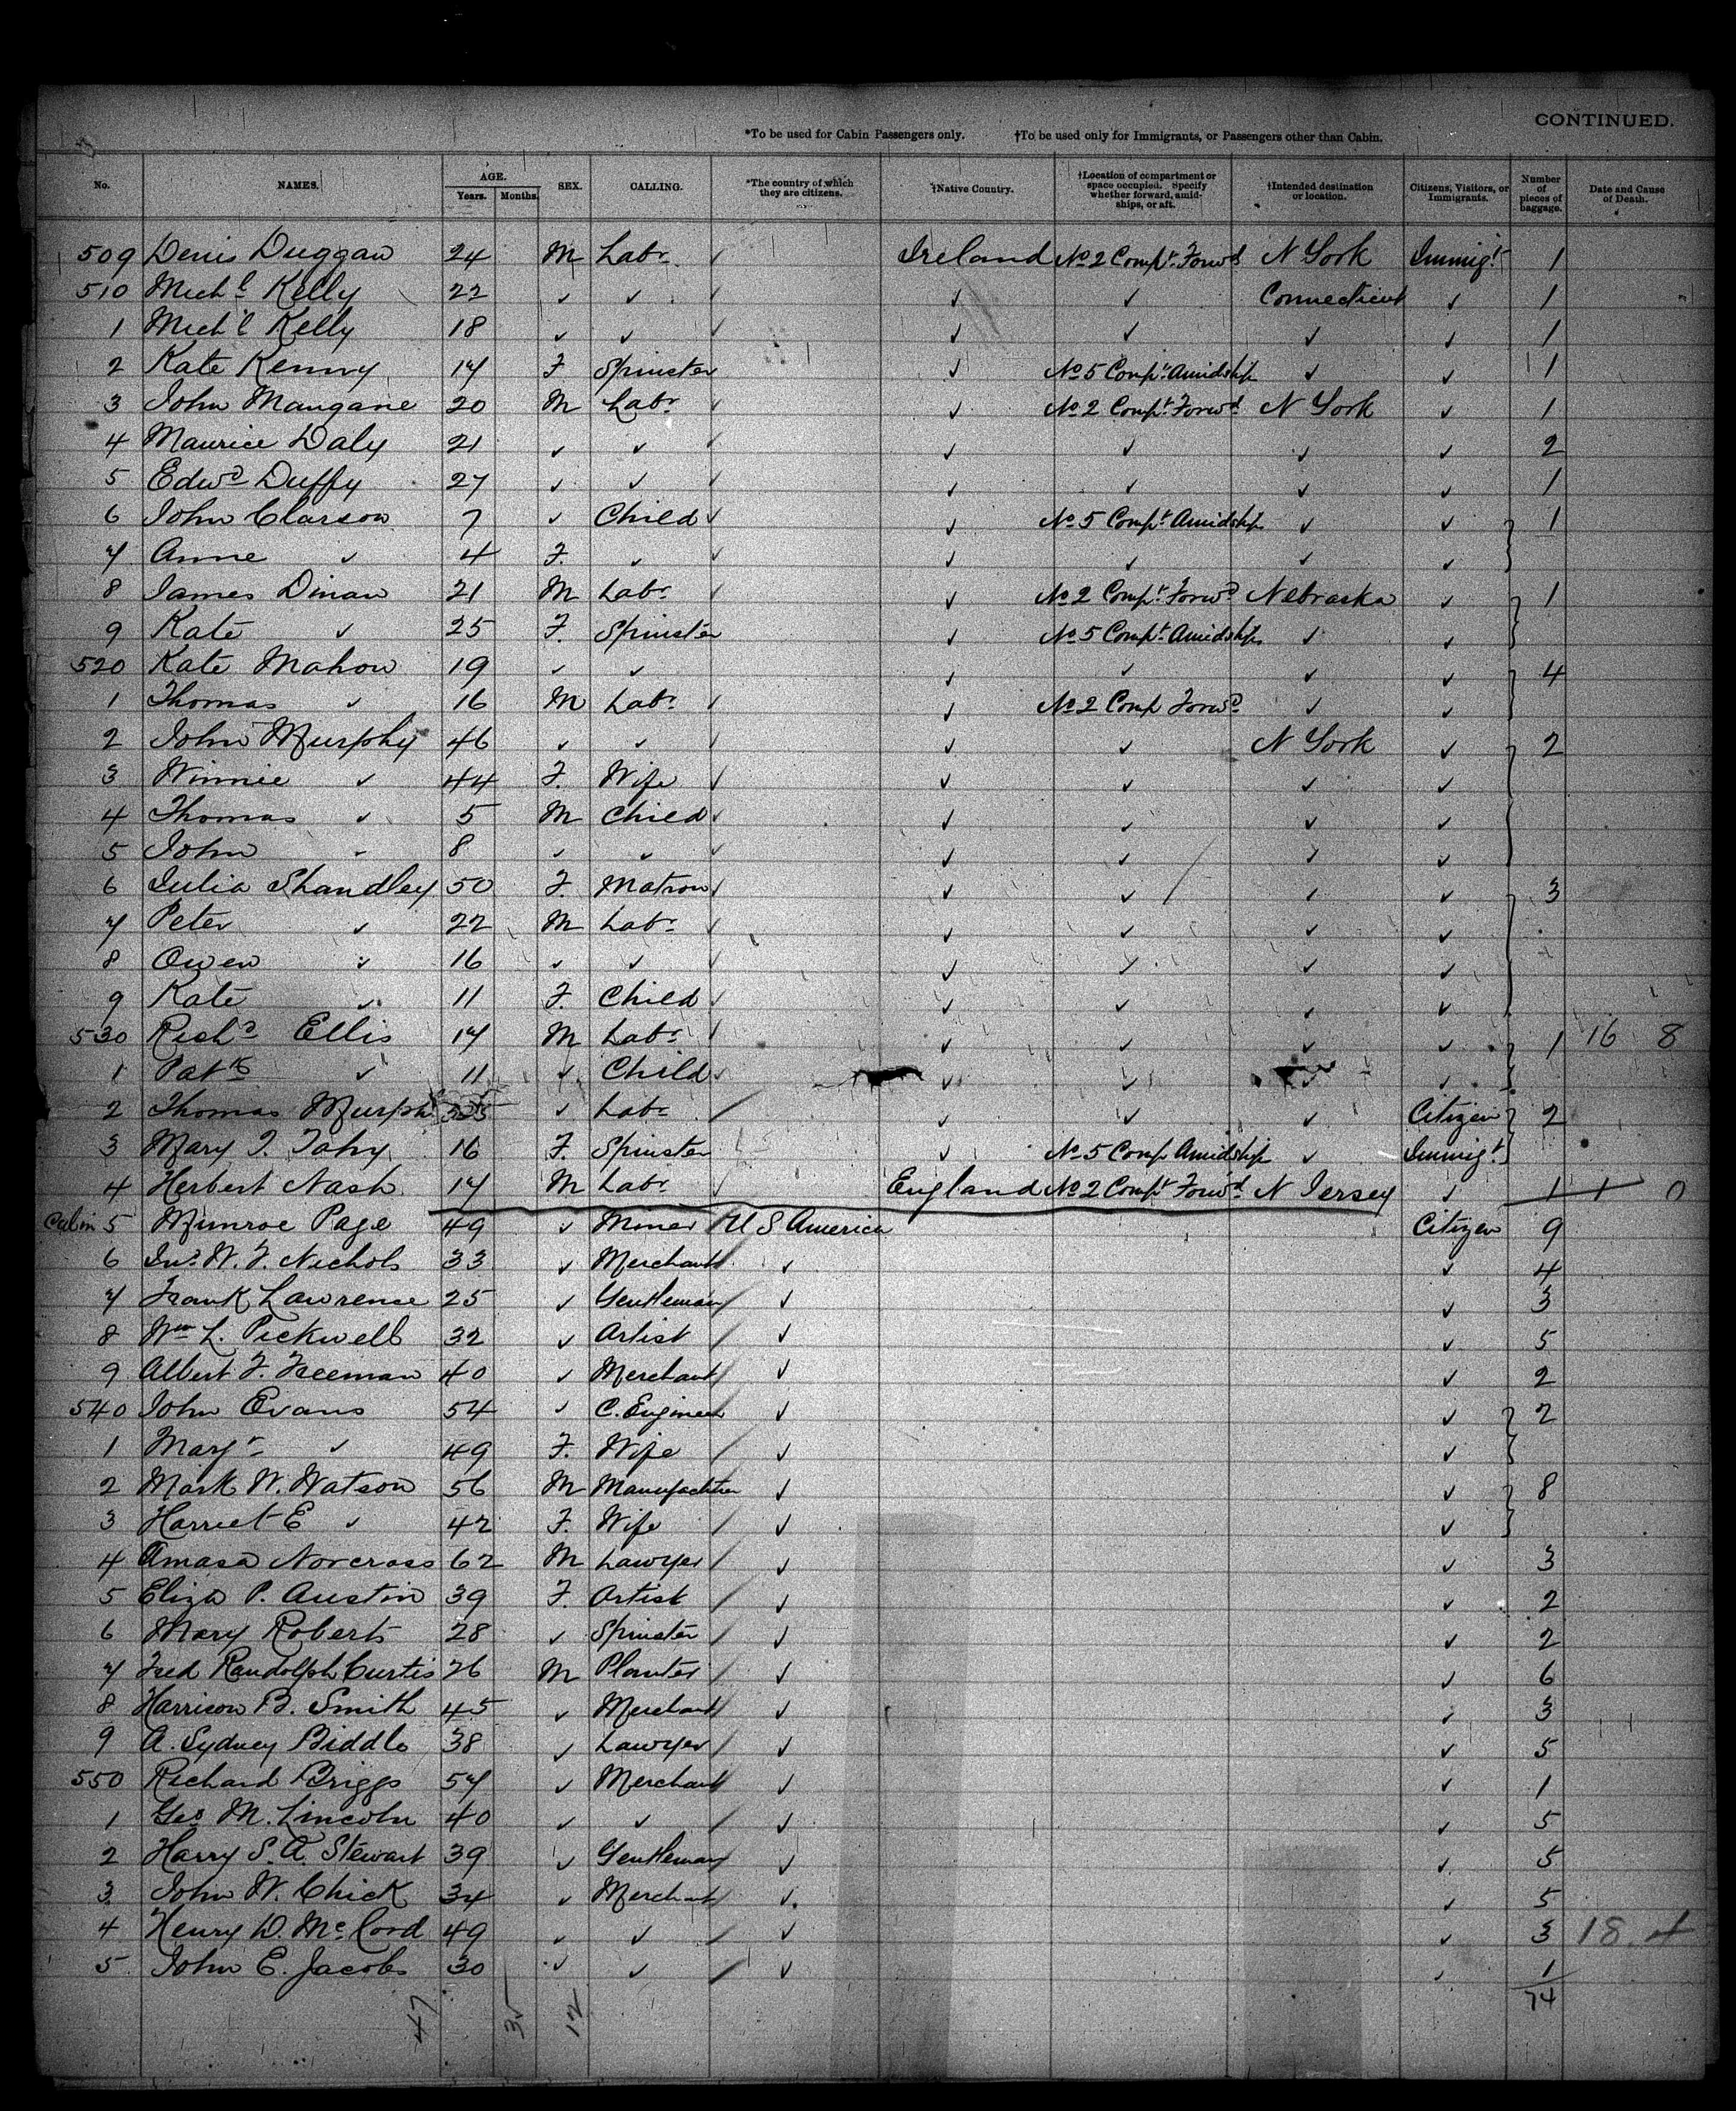 CONTINUED.
*To be used for Cabin Passengers only. †To be used only for Immigrants, or Passengers other than Cabin.
No. NAMES. AGE. Years. Months. SEX. CALLING. *The country of which they are citizens. †Native Country. †Location of compartment or space occupied. Specify whether forward, amidships, or aft. †Intended destination or location. Citizens, Visitors, or Immigrants. Number of pieces of baggage. Date and Cause of Death.
509 Denis Duggan 24 M Labr ✓ Ireland No 2 Compt Forwd N York Immigt 1
510 Michl Kelly 22 ✓ ✓ ✓ ✓ ✓ Connecticut ✓ 1
1 Mich'l Kelly 18 ✓ ✓ ✓ ✓ ✓ ✓ ✓ 1
2 Kate Kenny 17 F Spinster ✓ No 5 Compt Amidship ✓ ✓ 1
3 John Mangane 20 M Labr ✓ ✓ No 2 Compt Forwd N York ✓ 1
4 Maurice Daly 21 ✓ ✓ ✓ ✓ ✓ ✓ ✓ 2
5 Edwd Duffy 27 ✓ ✓ ✓ ✓ ✓ ✓ ✓ 1
6 John Clarson 7 ✓ Child ✓ ✓ No 5 Compt Amidship ✓ ✓ 1
7 Anne ✓ 4 F. ✓ ✓ ✓ ✓ ✓ ✓
8 James Dinan 21 M Labr ✓ ✓ No 2 Compt Forwd Nebraska ✓ 1
9 Kate ✓ 25 F. Spinster ✓ No 5 Compt Amidship ✓ ✓
520 Kate Mahon 19 ✓ ✓ ✓ ✓ ✓ ✓ 4
1 Thomas ✓ 16 M Labr ✓ ✓ No 2 Comp Forwd ✓ ✓
2 John Murphy 46 ✓ ✓ ✓ ✓ ✓ N York ✓ 2
3 Winnie ✓ 44 F. Wife ✓ ✓ ✓ ✓ ✓
4 Thomas ✓ 5 M Child ✓ ✓ ✓ ✓ ✓
5 John ✓ 8 ✓ ✓ ✓ ✓ ✓ ✓ ✓
6 Julia Shandley 50 F. Matron ✓ ✓ ✓ ✓ ✓ 3
7 Peter ✓ 22 M Labr ✓ ✓ ✓ ✓ ✓
8 Owen ✓ 16 ✓ ✓ ✓ ✓ ✓ ✓ ✓
9 Kate ✓ 11 F. Child ✓ ✓ ✓ ✓ ✓
530 Richd Ellis 17 M Labr ✓ ✓ ✓ ✓ ✓ 1 16 8
1 Patk ✓ 11 ✓ Child ✓ ✓ ✓ ✓ ✓
2 Thomas ✓ Labr ✓ ✓ ✓ Citizen 2
3 Mary 16 F. Spinster ✓ No 5 Comp Amidship ✓ Immigt
4 Herbert Nash 17 M Labr ✓ England No 2 Compt Forwd N Jersey ✓ 1 1 0
Cabin 5 Munroe Page 49 ✓ U S America Citizen 9
6 Jno. W. F. Nichols 33 ✓ Merchant ✓ ✓ 4
7 Frank Lawrence 25 ✓ Gentleman ✓ ✓ 3
8 Wm L. Pickwell 32 ✓ Artist ✓ ✓ 5
9 Albert F. Freeman 40 ✓ Merchant ✓ ✓ 2
540 John Evans 54 ✓ C. Engineer ✓ ✓ 2
1 Margt ✓ 49 F. Wife ✓ ✓
2 Mark W. Watson 56 M Manufacturer ✓ ✓ 8
3 Harriet E ✓ 42 F. Wife ✓ ✓
4 Amasa Norcross 62 M Lawyer ✓ ✓ 3
5 Eliza P. Austin 39 F. Artist ✓ ✓ 2
6 Mary Roberts 28 ✓ Spinster ✓ ✓ 2
7 Fred Randolph Curtis 26 M Planter ✓ ✓ 6
8 Harrison B. Smith 45 ✓ Merchant ✓ ✓ 3
9 A. Sydney Biddle 38 ✓ Lawyer ✓ ✓ 5
550 Richard Briggs 57 ✓ Merchant ✓ ✓ 1
1 Geo M. Lincoln 40 ✓ ✓ ✓ ✓ 5
2 Harry S. A. Stewart 39 ✓ Gentleman ✓ ✓ 5
3 John W. Chick 34 ✓ Merchant ✓ ✓ 5
4 Henry D. McCord 49 ✓ ✓ ✓ ✓ 3 18. 4
5 John E. Jacobs 30 ✓ ✓ ✓ ✓ 1
47 35 12 74